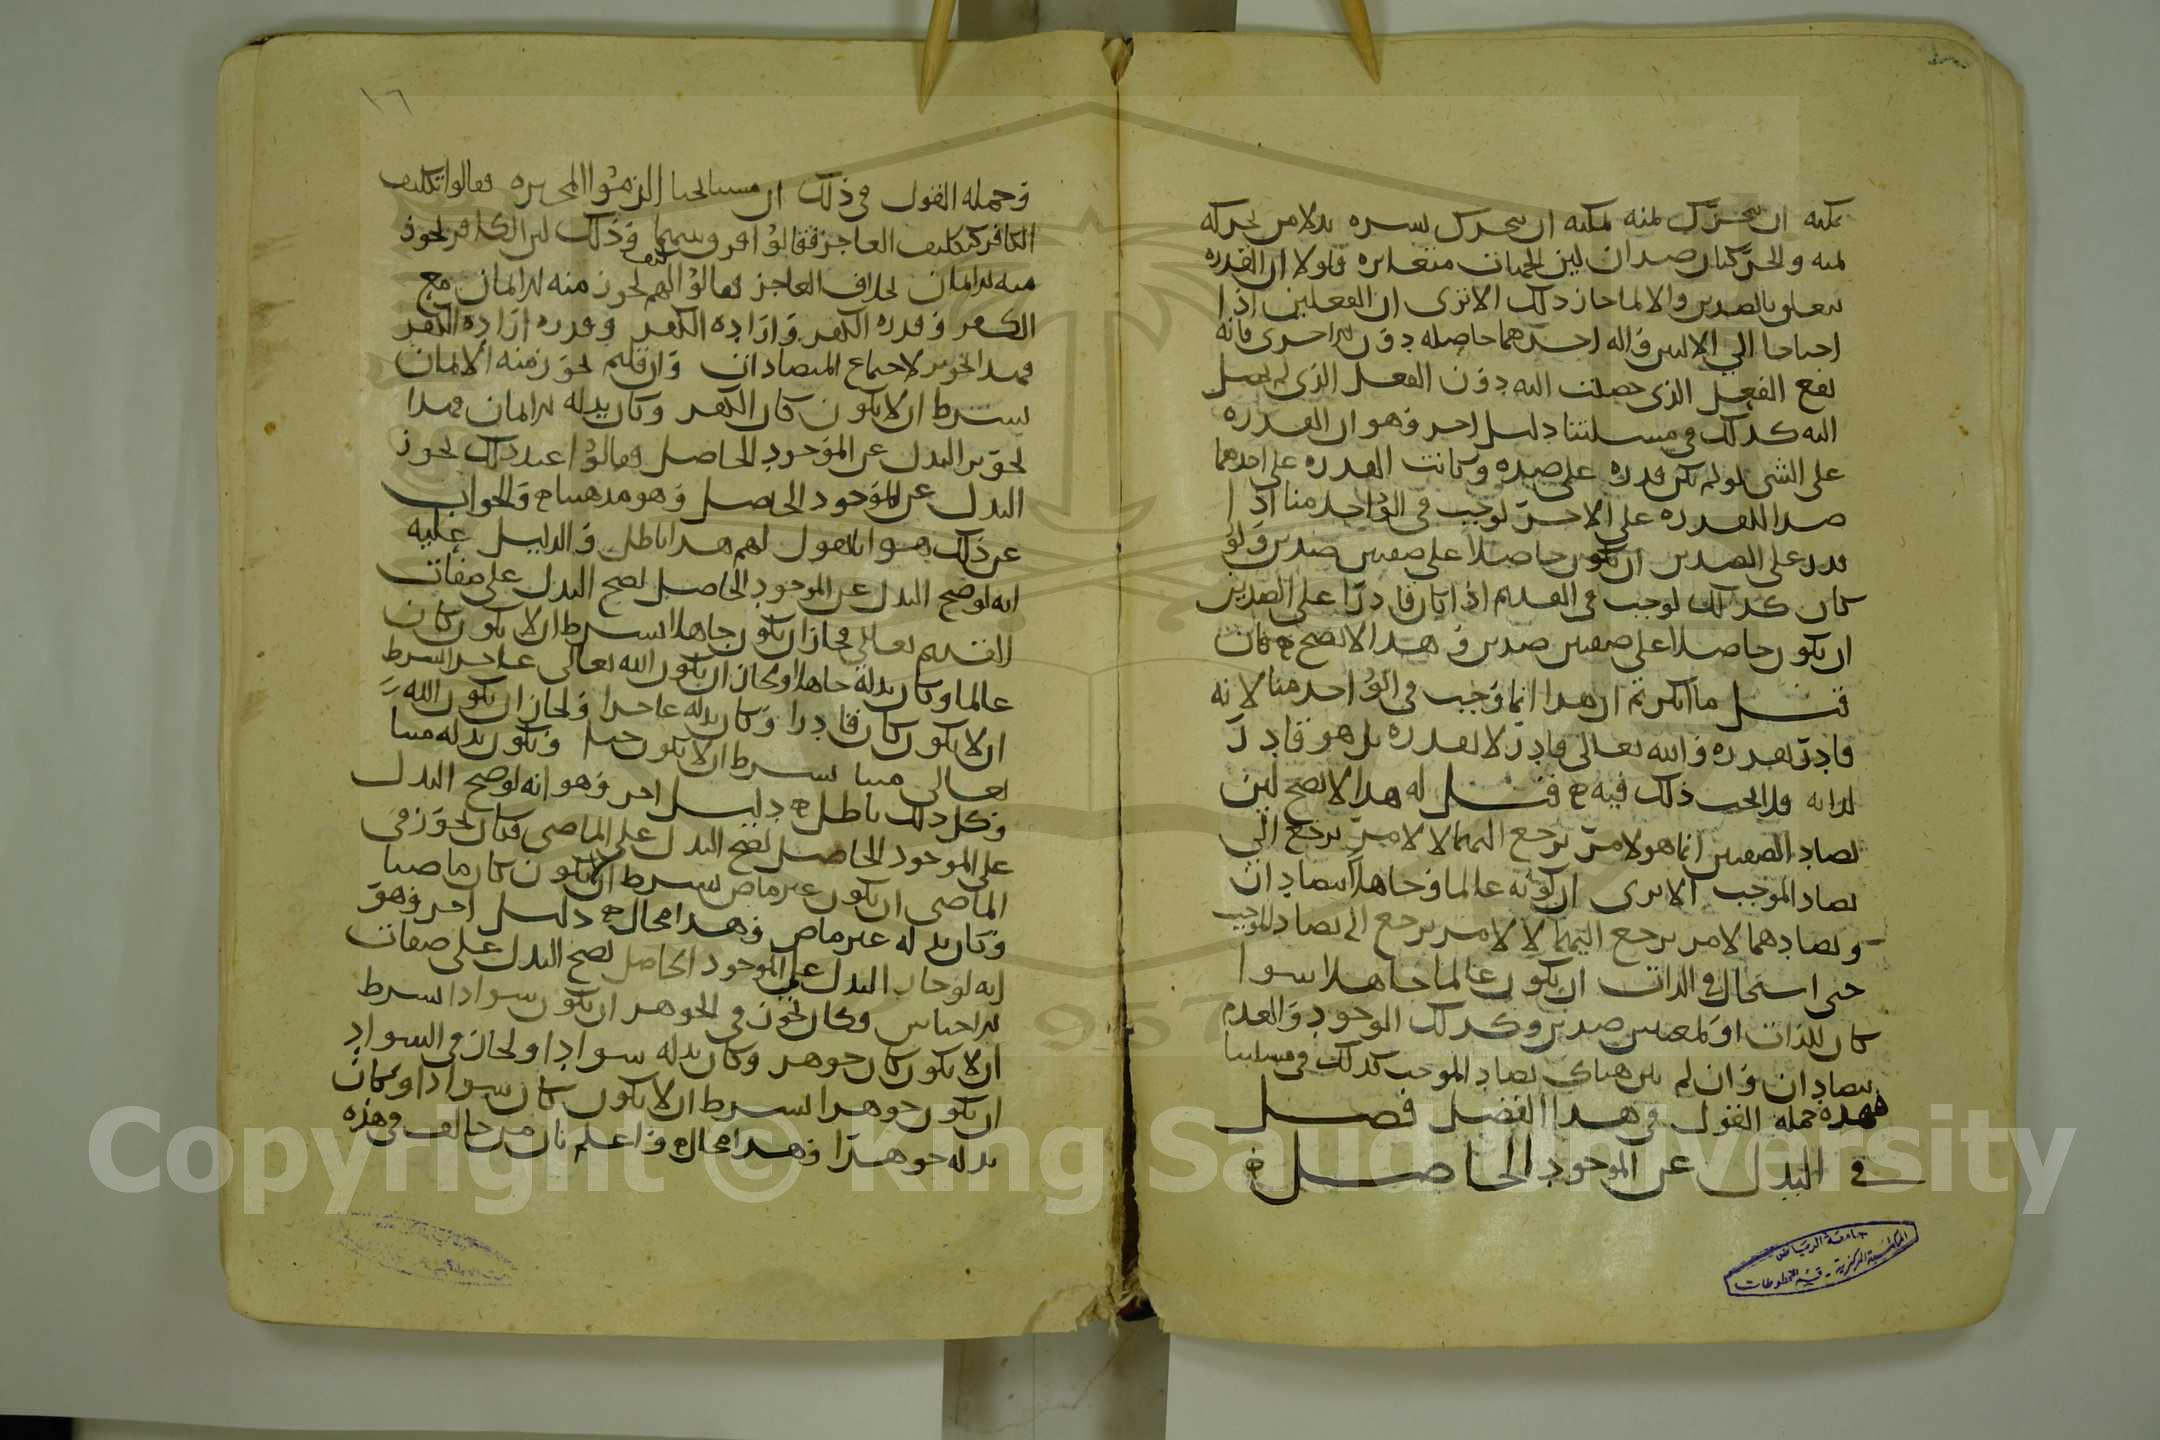 يمكنه ان يتحرك يمنه يمكنه ان يتحرك يسره بدلا من تحركه
يمنه والحركتان ضدان لين الجهات متغايره فلولا ان القدره
تتعلق بالضدين والا لما جاز ذلك الا ترى ان الفعلين اذا
احتاجا الى الالتين واله احديهما حاصله دون الاخرى فانه
يقع الفعل الذي حصلت الته دون الفعل الذي لم يحصل
الته كذلك في مسلتنا دليل اخر وهو ان القدره
على الشي لو لم تكن قدره على ضده وكانت القدره على احدهما
ضدا للقدره على الاخر لوجب في الواحد منا اذا
قدر على الضدين ان يكون حاصلا على صفتين ضدين ولو
كان كذلك لوجب في القديم اذا كان قادرا على الضدين
ان يكون حاصلا على صفتين ضدين وهذا لا يصح فان
قيل ما انكرتم ان هذا انما وجب في الواحد منا لانه
قادر بقدره والله تعالى قادر لا بقدره بل هو قادر
لذاته فلا يجب ذلك فيه قيل له هذا لا يصح لين
تضاد الصفتين انما هو لامر يرجع اليهما لا لامر يرجع الى
تضاد الموجب الا ترى ان كونه عالما وجاهلا يتضادان
وتضادهما لامر يرجع اليهما لا لامر يرجع الى تضاد الموجب
حتى استحال في الذات ان يكون عالما جاهلا سوا
كان للذات او لمعنيين ضدين وكذلك الوجود والعدم
يتضادان وان لم يكن هناك تضاد الموجب كذلك في مسلتنا
فهذه جمله القول في هذا الفصل فصل
في البدل عن الموجود الحاصل
جامعة الرياض
المكتبة المركزية - قسم المخطوطات
١٦
وجمله القول في ذلك ان مشايخنا الزموا المجبره فقالوا تكليف
الكافر كتكليف العاجز فقالوا فرق بينهما وذلك لين الكافر يجوز
منه الايمان بخلاف العاجز فقالوا لهم يجوز منه الايمان مع
الكفر وقدره الكفر وارادة الكفر وقدره ارادة الكفر
فهذا تجويز لاجتماع المتضادات وان قلتم يجوز منه الايمان
بشرط ان لا يكون كان الكفر وكان بدله الايمان فهذا
تجويز البدل عن الموجود الحاصل فقالوا عند ذلك يجوز
البدل عن الموجود الحاصل وهو مذهبنا والجواب
عن ذلك هو انا نقول لهم هذا باطل والدليل عليه
انه لو صح البدل عن الموجود الحاصل لصح البدل على صفات
القديم تعالى فجاز ان يكون جاهلا بشرط ان لا يكون كان
عالما وكان بدله جاهلا ولجاز ان يكون الله تعالى عاجزا بشرط
ان لا يكون كان قادرا وكان بدله عاجزا ولجاز ان يكون الله
تعالى ميتا بشرط ان لا يكون حيا ويكون بدله ميتا
وكل ذلك باطل دليل اخر وهو انه لو صح البدل
على الموجود الحاصل لصح البدل على الماضي فكان يجوز في
الماضي ان يكون غير ماض بشرط ان لا يكون كان ماضيا
وكان بدله غير ماض وهذا محال دليل اخر وهو
انه لو جاز البدل على الموجود الحاصل لصح البدل على صفات
الاجناس وكان يجوز في الجوهر ان يكون سوادا بشرط
ان لا يكون كان جوهر وكان بدله سوادا ولجاز في السواد
ان يكون جوهرا بشرط ان لا يكون كان سوادا وكان
بدله جوهرا وهذا محال واعلم بان من خالف في هذه
Copyright © King Saud University
1957